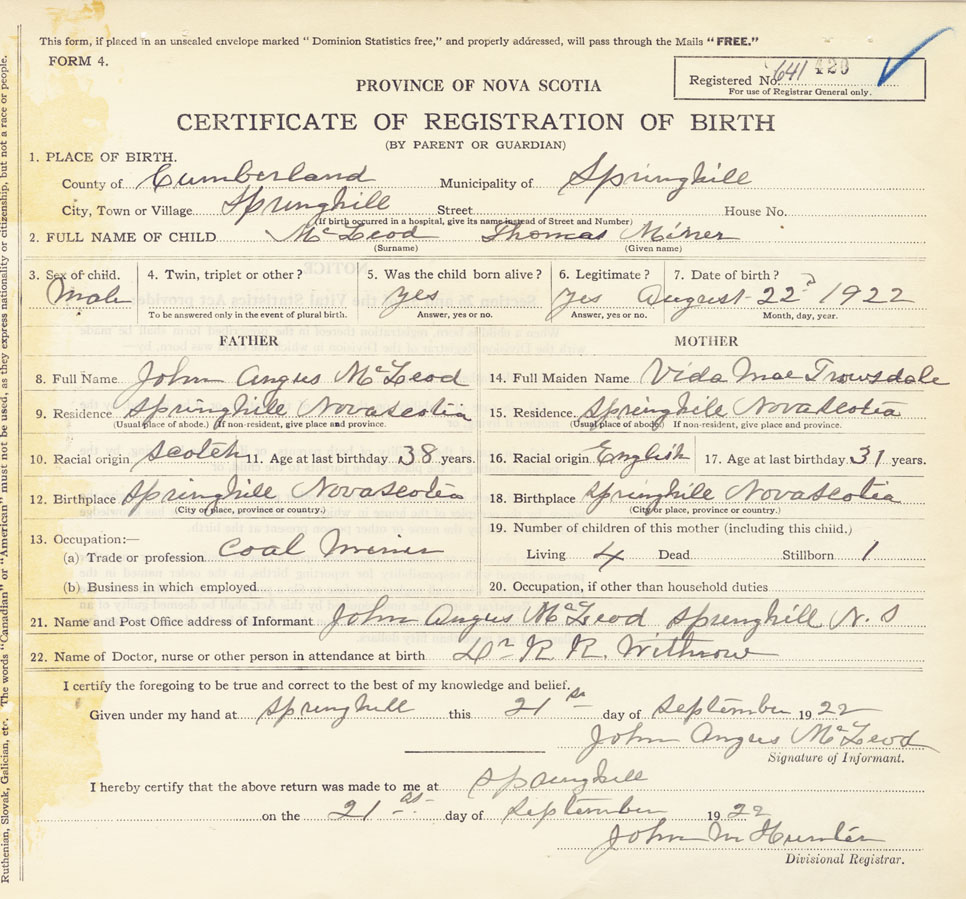 This form, if placed in an unsealed envelope marked "Dominion Statistics free," and properly addressed, will pass through the Mails "FREE."
FORM 4.
Registered No. 641 420
For use of Registrar General only.
PROVINCE OF NOVA SCOTIA
CERTIFICATE OF REGISTRATION OF BIRTH
(BY PARENT OR GUARDIAN)
1. PLACE OF BIRTH.
County of Cumberland Municipality of Springhill
City, Town or Village Springhill Street House No.
(If birth occurred in a hospital, give its name instead of Street and Number)
2. FULL NAME OF CHILD McLeod Thomas Miner
(Surname) (Given name)
3. Sex of child. 4. Twin, triplet or other? 5. Was the child born alive? 6. Legitimate? 7. Date of birth?
Male yes yes August 22nd 1922
To be answered only in the event of plural birth. Answer, yes or no. Answer, yes or no. Month, day, year.
FATHER MOTHER
8. Full Name John Angus McLeod 14. Full Maiden Name Vida Mae Trowsdale
9. Residence Springhill Nova Scotia 15. Residence Springhill Nova Scotia
(Usual place of abode.) (If non-resident, give place and province. (Usual place of abode) If non-resident, give place and province.
10. Racial origin Scotch 11. Age at last birthday 38 years. 16. Racial origin English 17. Age at last birthday 31 years.
12. Birthplace Springhill Nova Scotia 18. Birthplace Springhill Nova Scotia
(City or place, province or country.) (City or place, province or country.)
13. Occupation:— 19. Number of children of this mother (including this child.)
(a) Trade or profession Coal Miner Living 4 Dead Stillborn 1
(b) Business in which employed 20. Occupation, if other than household duties
21. Name and Post Office address of Informant John Angus McLeod Springhill N. S
22. Name of Doctor, nurse or other person in attendance at birth Dr R. R. Withrow
I certify the foregoing to be true and correct to the best of my knowledge and belief.
Given under my hand at Springhill this 21st day of September 1922
John Angus McLeod
Signature of Informant.
I hereby certify that the above return was made to me at Springhill
on the 21st day of September 1922
John M Hunter
Divisional Registrar.
Ruthenian, Slovak, Galician, etc. The words "Canadian" or "American" must not be used, as they express nationality or citizenship, but not a race or people.